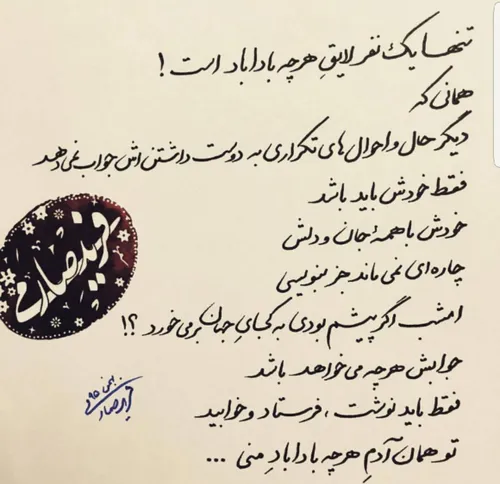 تنها یک نفر لایقِ هرچه بادا باد است !
همانی که
دیگر حال و احوال های تکراری به دوست داشتن اش جواب نمی دهد
فقط خودش باید باشد
خودش با همهٔ جان و دلش
چاره ای نمی ماند جز بنویسی
امشب اگر پیشم بودی به کجایِ جهان بر می خورد ؟!
جوابش هرچه می خواهد باشد
فقط باید نوشت ، فرستاد و خوابید
تو همان آدمِ هرچه بادا بادِ منی ...
فرید صارمی
بهمن ۹۵
فرید صارمی